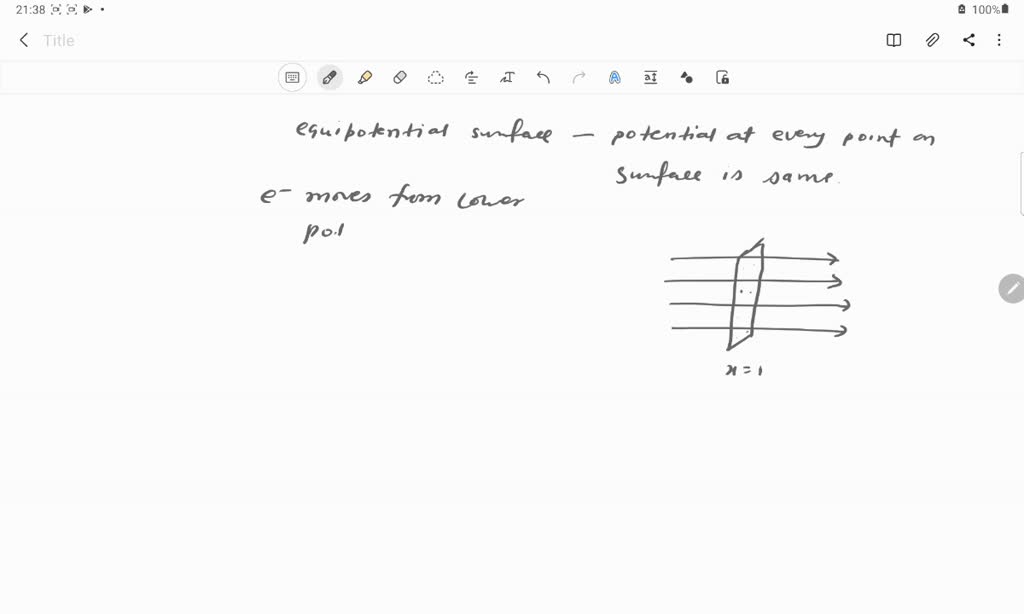 21:38
100%
Title
equipotential surface — potential at every point on
surface is same.
e⁻ moves from lower
pot
x = 1